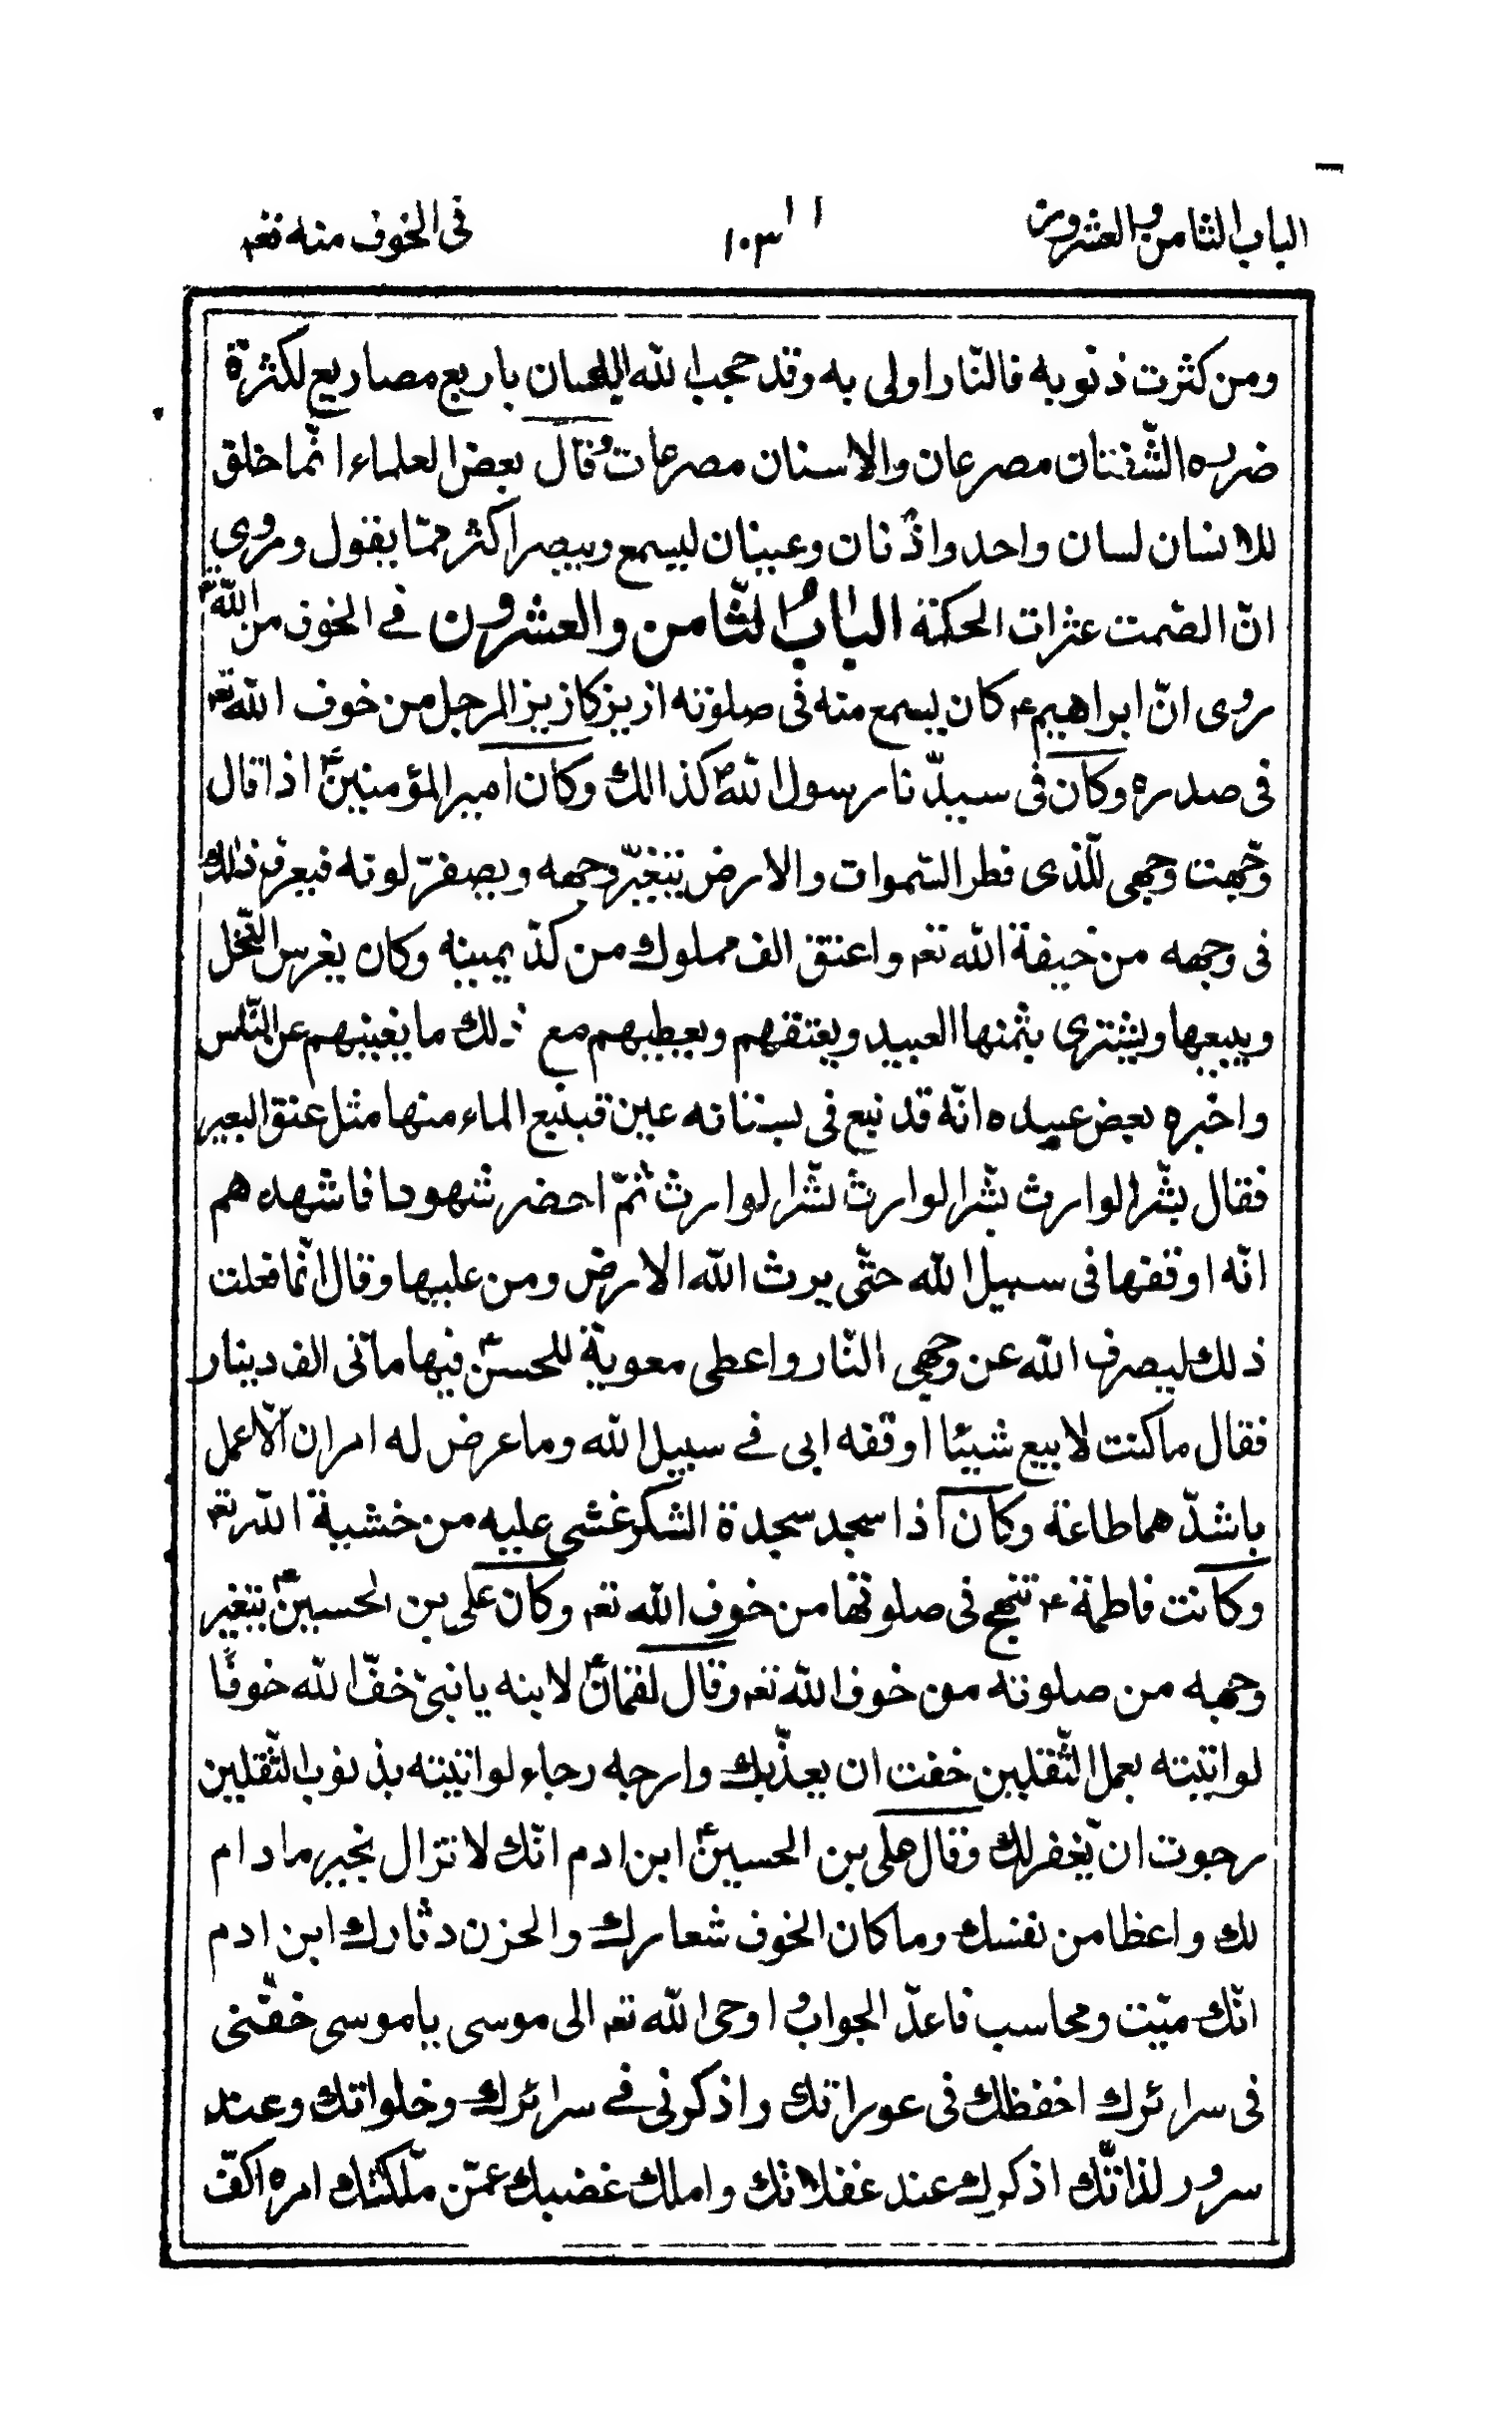 الباب الثامن والعشرون ١٠٣ فی الخوف منه تعم
ومن كثرت ذنوبه فالنّار اولى به وقد حجب الله اللسان باربع مصاريع لكثرة
ضرره الشّفتان مصرعان والاسنان مصرعان وقال بعض العلماء انّما خلق
للانسان لسان واحد واذنان وعينان ليسمع ويبصر اكثر ممّا يقول وروي
انّ الصّمت عثرات الحكمة الباب الثّامن والعشرون في الخوف من الله
روى انّ ابراهيم ع كان يسمع منه فى صلوته ازيز كازيز المرجل من خوف الله تعم
فى صدره وكان فى سيدّنا رسول الله ص كذالك وكان امير المؤمنين ع اذا قال
وجّهت وجهى للّذى فطر السّموات والارض يتغيّر وجهه ويصفرّ لونه فيعرف ذلك
فى وجهه من خيفة الله تعم واعتق الف مملوك من كدّ يمينه وكان يغرس النّخل
ويبيعها ويشترى بثمنها العبيد ويعتقهم ويعطيهم مع ذلك ما يغنيهم عن النّاس
واخبره بعض عبيده انّه قد نبع فى بستانه عين قبنبع الماء منها مثل عنق البعير
فقال بشّر الوارث بشّر الوارث بشّر الوارث ثمّ احضر شهودا فاشهدهم
انّه اوقفها فى سبيل الله حتّى يرث الله الارض ومن عليها وقال انّما فعلت
ذلك ليصرف الله عن وجهى النّار واعطى معوية للحسن ع فيها مأتى الف دينار
فقال ما كنت لابيع شيئا اوقفه ابى في سبيل الله وما عرض له امران الّا عمل
باشدّهما طاعة وكان اذا سجد سجدة الشكر غشى عليه من خشية الله تعم
وكانت فاطمة ع تنهج فى صلوتها من خوف الله تعم وكان على بن الحسين ع يتغير
وجهه من صلوته من خوف الله تعم وقال لقمان ع لابنه يا بنىّ خفّ الله خوفًا
لو اتيته بعمل الثّقلين خفت ان يعذّبك وارجه رجاء لو اتيته بذنوب الثّقلين
رجوت ان يّغفر لك وقال على بن الحسين ع ابن ادم انّك لا تزال بخير ما دام
لك واعظا من نفسك وما كان الخوف شعارك والحزن دثارك ابن ادم
انّك ميّت ومحاسب فاعدّ الجواب و اوحى الله تعم الى موسى يا موسى خفّنى
فى سرائرك احفظك فى عوراتك واذكرنى في سرائرك وخلواتك وعند
سرور لذاتّك اذكرك عند غفلاتك واملك غضبك عمّن ملّكتك امره اكفّ